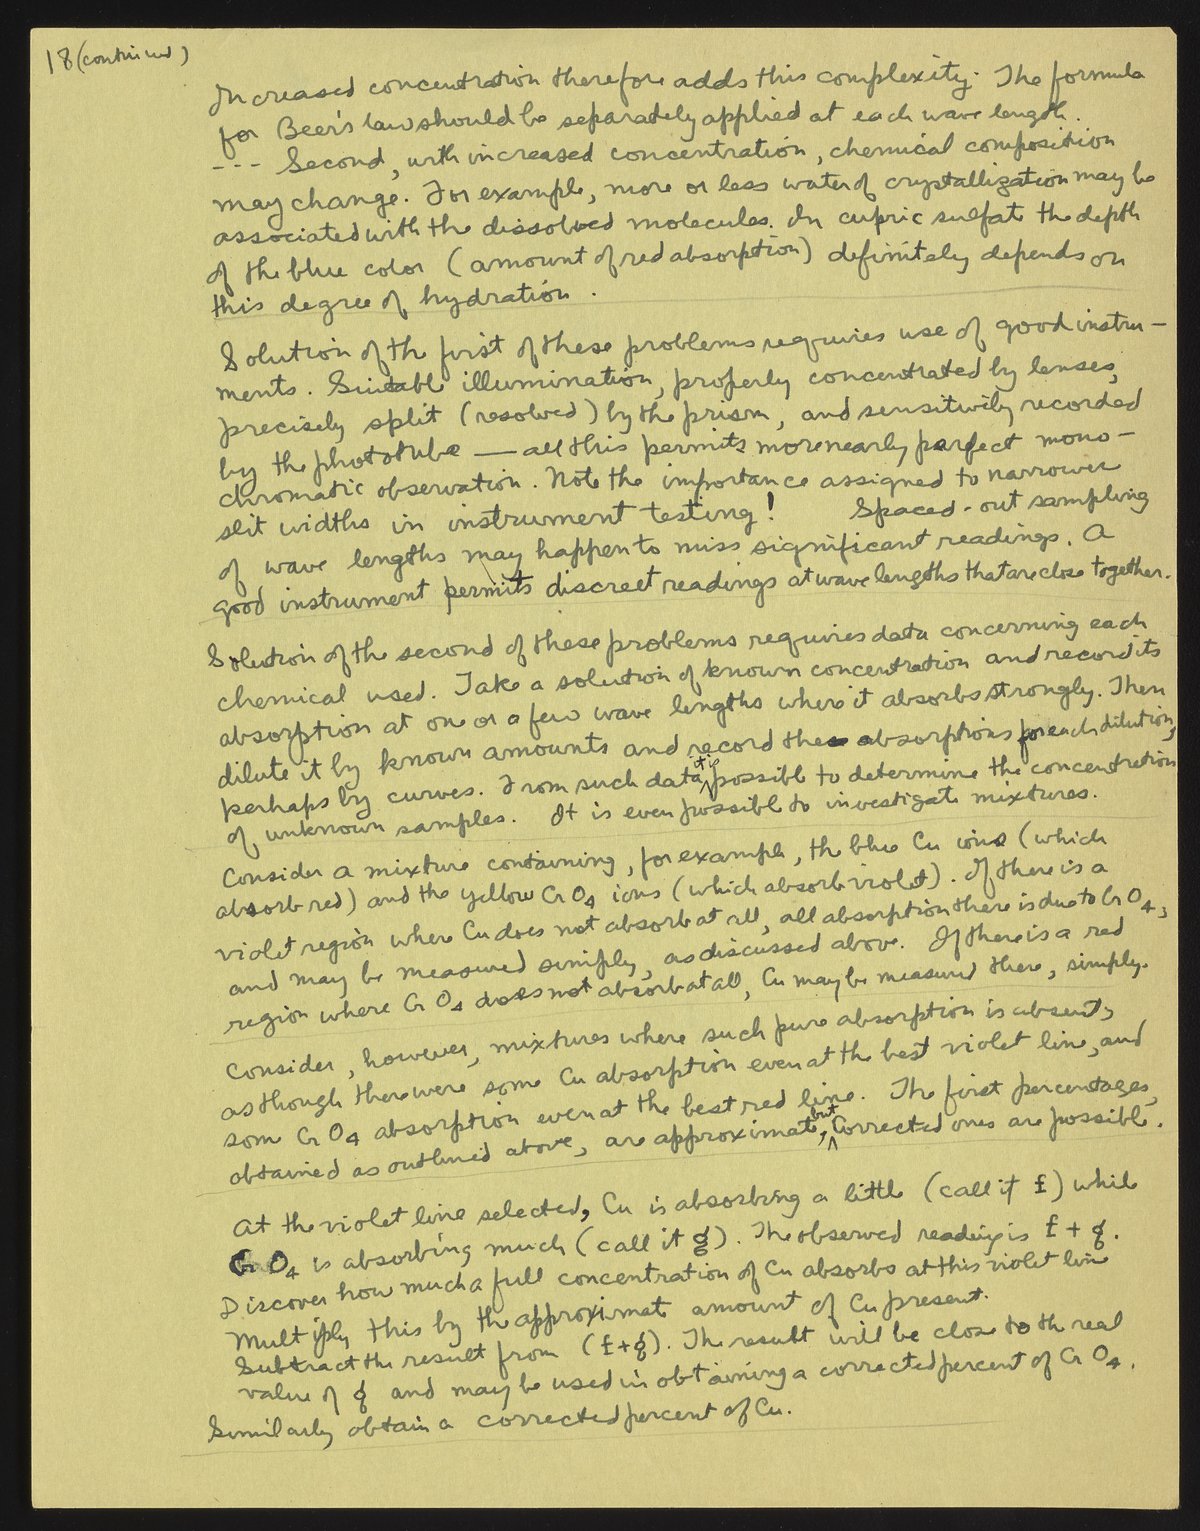 18 (continued)
Increased concentration therefore adds this complexity. The formula
for Beer's law should be separately applied at each wave length.
--- Second, with increased concentration, chemical composition
may change. For example, more or less water of crystallization may be
associated with the dissolved molecules. In cupric sulfate the depth
of the blue color (amount of red absorption) definitely depends on
this degree of hydration.
Solution of the first of these problems requires use of good instru-
ments. Suitable illumination, properly concentrated by lenses,
precisely split (resolved) by the prism, and sensitively recorded
by the phototube — all this permits more nearly perfect mono-
chromatic observation. Note the importance assigned to narrower
slit widths in instrument testing! Spaced-out sampling
of wave lengths may happen to miss significant readings. A
good instrument permits discreet readings at wave lengths that are close together.
Solution of the second of these problems requires data concerning each
chemical used. Take a solution of known concentration and record its
absorption at one or a few wave lengths where it absorbs strongly. Then
dilute it by known amounts and record the absorptions for each dilution,
perhaps by curves. From such data it is possible to determine the concentration
of unknown samples. It is even possible to investigate mixtures.
Consider a mixture containing, for example, the blue Cu ions (which
absorb red) and the yellow CrO4 ions (which absorb violet). If there is a
violet region where Cu does not absorb at all, all absorption there is due to CrO4,
and may be measured simply, as discussed above. If there is a red
region where CrO4 does not absorb at all, Cu may be measured there, simply.
Consider, however, mixtures where such pure absorption is absent,
as though there were some Cu absorption even at the best violet line, and
some CrO4 absorption even at the best red line. The first percentages,
obtained as outlined above, are approximate, but corrected ones are possible.
At the violet line selected, Cu is absorbing a little (call it f) while
CrO4 is absorbing much (call it g). The observed reading is f + g.
Discover how much a full concentration of Cu absorbs at this violet line
Multiply this by the approximate amount of Cu present.
Subtract the result from (f+g). The result will be close to the real
value of g and may be used in obtaining a corrected percent of CrO4.
Similarly obtain a corrected percent of Cu.